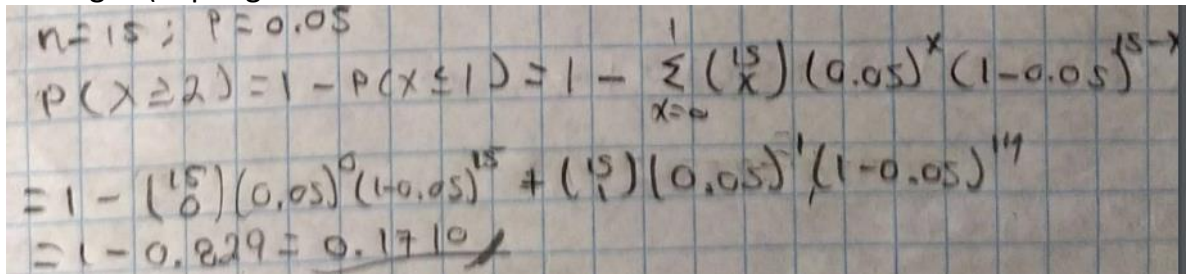 n=15; P=0.05
P(X≥2)=1-P(X≤1)=1-∑_{x=0}^{1}(15 x)(0.05)^x(1-0.05)^{15-x}
=1-(15 0)(0.05)^0(1-0.05)^15+(15 1)(0.05)^1(1-0.05)^14
=1-0.829=0.1710